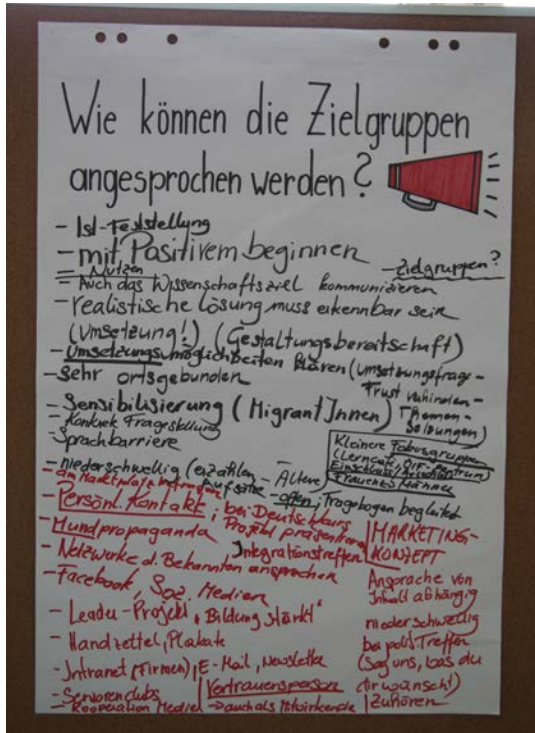 Wie können die Zielgruppen
angesprochen werden?
- Ist-Feststellung
- mit Positivem beginnen
= Nutzen
- Zielgruppen?
= Auch das Wissenschaftsziel kommunizieren
- realistische Lösung muss erkennbar sein
(Umsetzung!) (Gestaltungsbereitschaft)
- Umsetzungsmöglichkeiten klären (Umsetzungsfrage -
- sehr ortsgebunden
- Sensibilisierung (MigrantInnen)
Themen-
= konkrete Fragestellung
- Sprachbarriere
Kleinere Fokusgruppe
Frauen Männer
- niederschwellig (erzählen
Aufsätze
- Ältere
- offen; Fragebogen begleitet
- am Marktplatz
- Persönl. Kontakt; bei Deutschkurs
Projekt präsentieren
- Mundpropaganda
Integrationstreffen
- Netzwerke d. Bekannten ansprechen
- Facebook, Soz. Medien
- Leader-Projekt "Bildung stärkt"
- Handzettel, Plakate
- Intranet (Firmen), E-Mail, Newsletter
- Seniorenclubs
- Kooperation
Vertrauensperson
→ auch als Mitwirkende
MARKETING-
KONZEPT
Ansprache von
Inhalt abhängig
niederschwellig
bei polit. Treffen
(Sag uns, was du
dir wünscht)
Zuhören